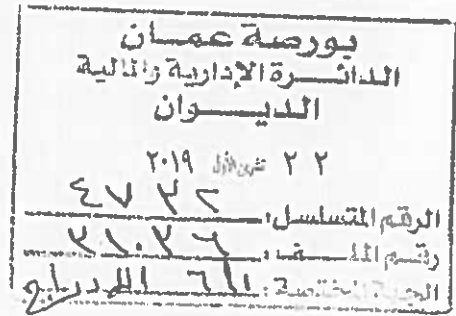 بورصة عمان
الدائرة الإدارية والمالية
الديوان
٢٢ تشرين الأول ٢٠١٩
الرقم المتسلسل: ٤٧٣٢
رقم الملف:
الجهة المختصة: